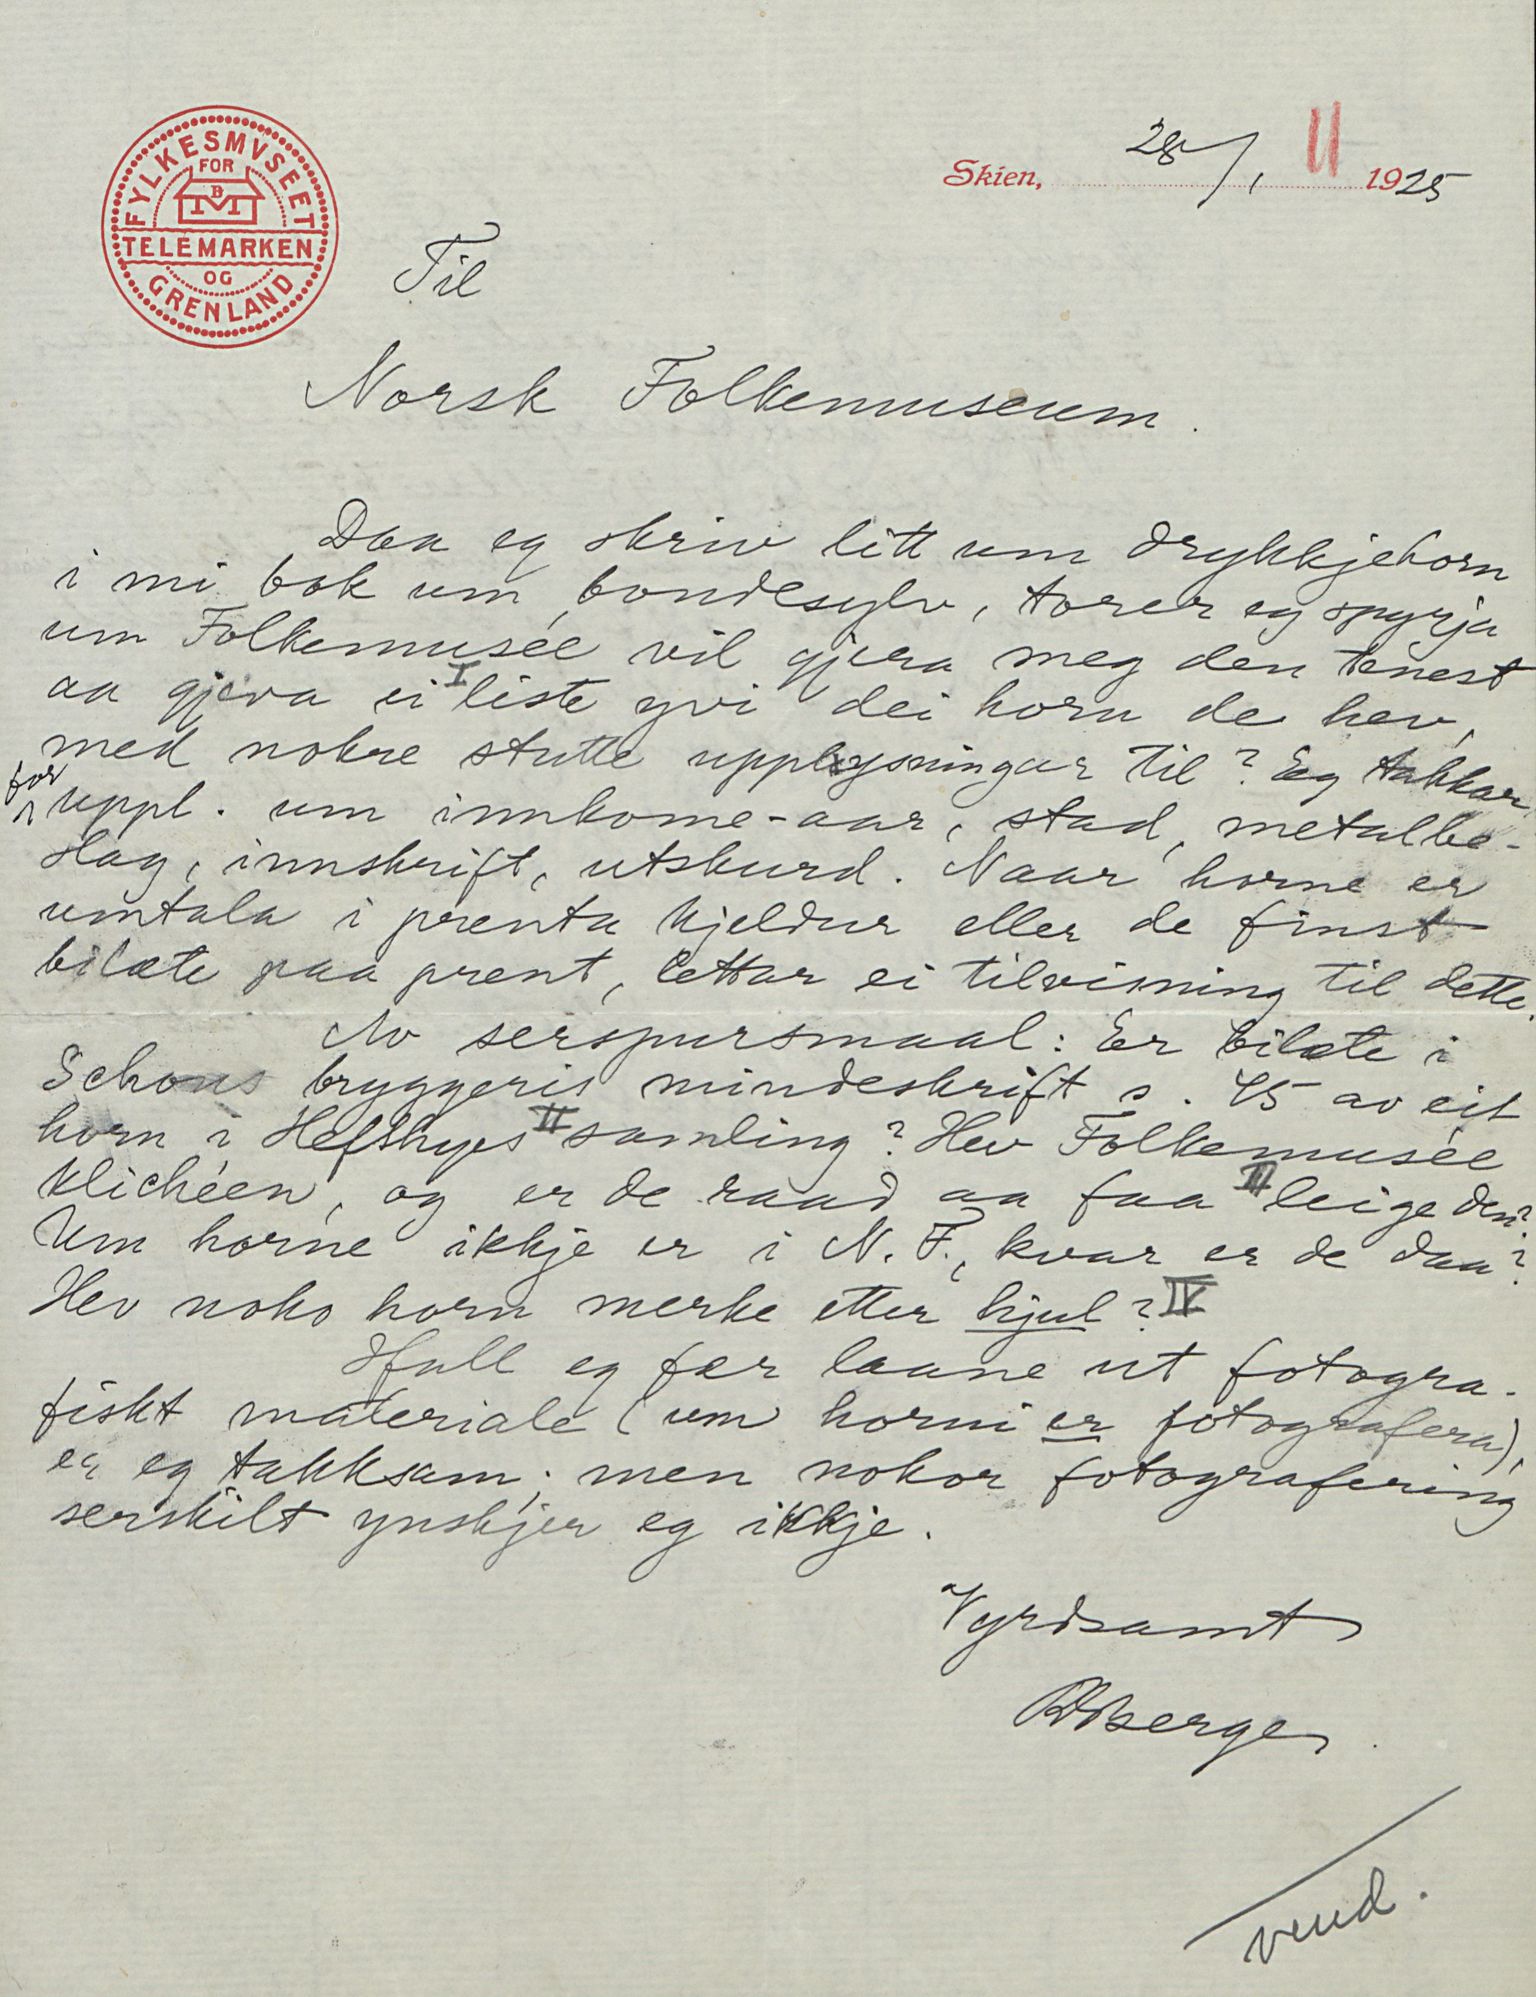 FYLKESMVSEET
FOR
BM
TELEMARKEN
OG
GRENLAND
Skien, 28/1 II 1925
Til
Norsk Folkemuseum.
Daa eg skriv litt um drykkjehorn
i mi bok um bondesylv, torer eg spyrja
um Folkemusée vil gjera meg den tenest
aa gjeva ei I liste yvi dei horn de hev,
med nokre stutte upplysningar til? Eg takkar
for uppl. um innkome-aar, stad, metalbe-
slag, innskrift, utskurd. Naar horne er
umtala i prenta kjeldur eller de finst
bilæte paa prent, lettar ei tilvisning til dette.
Av serspursmaal: Er bilæte i
Schous bryggeris mindeskrift s. 45 av eit
horn i Heftyes II samling? Hev Folkemusée
klichéen, og er de raad aa faa III leige den?
Um horne ikkje er i N. F., kvar er de daa?
Hev noko horn merke etter hjul? IV
Ifall eg fær laane ut fotogra-
fiskt materiale (um horni er fotografera),
er eg takksam; men nokor fotografering
serskilt ynskjer eg ikkje.
Vyrdsamt
RBerge.
vend.